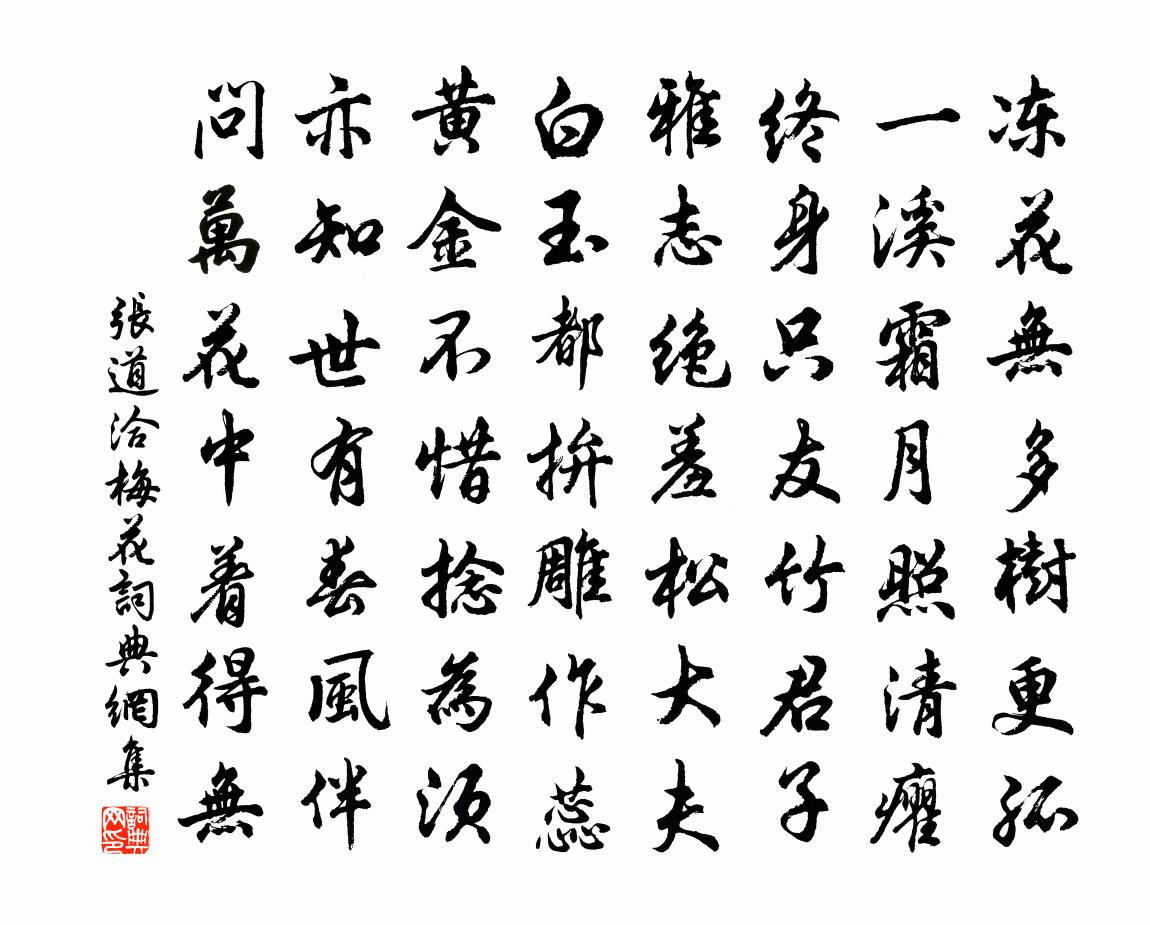 冻花無多樹更孤
一溪霜月照清癯
终身只友竹君子
雅志绝羞松大夫
白玉都拚雕作蕊
黄金不惜捻為须
亦知世有春風伴
問萬花中着得無
張道洽梅花詞典網集
詞典网印